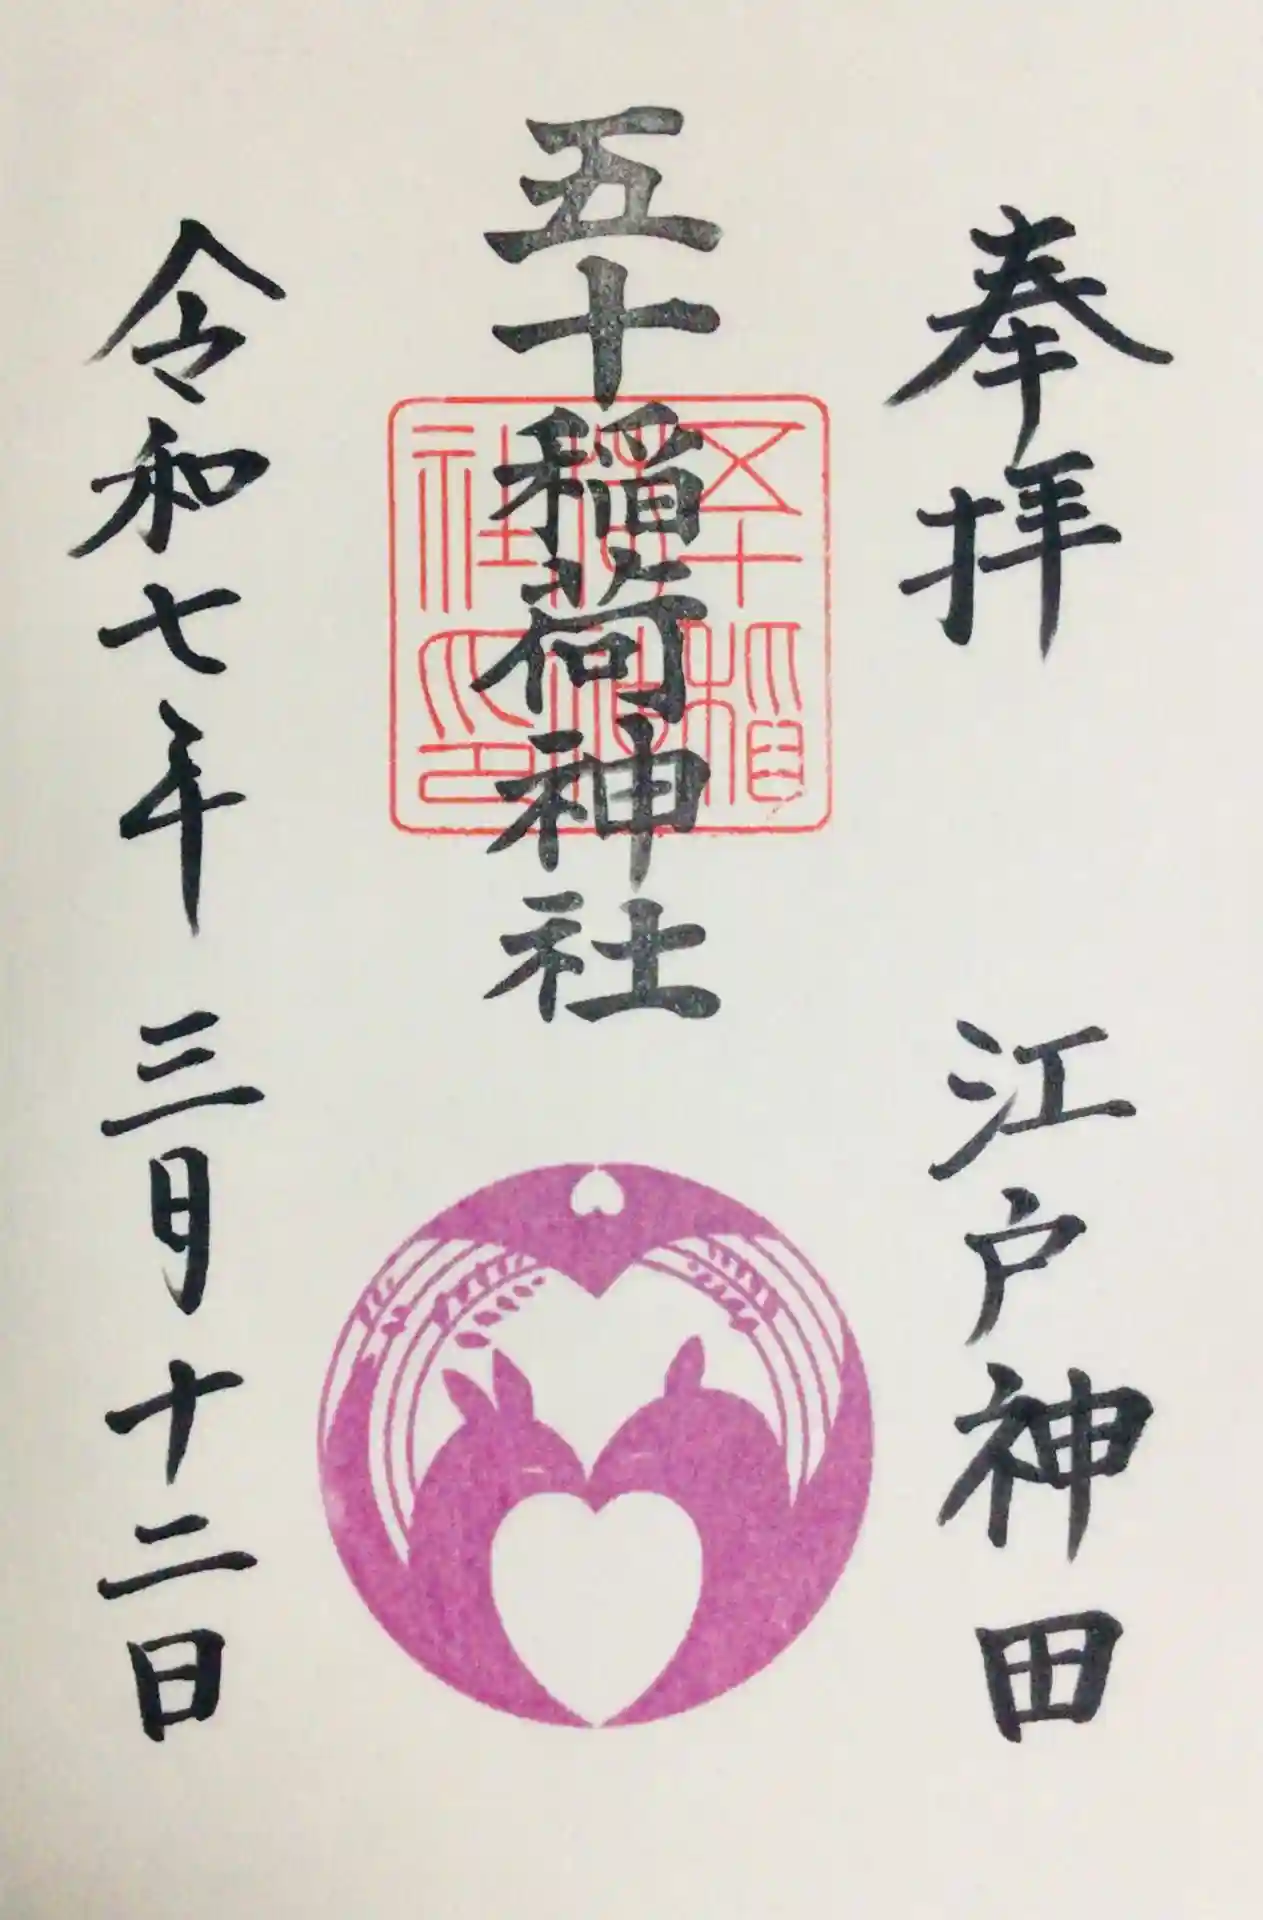 奉拝 江戸神田
五十稲荷神社
五十稲荷神社之印
令和七年 三月十二日